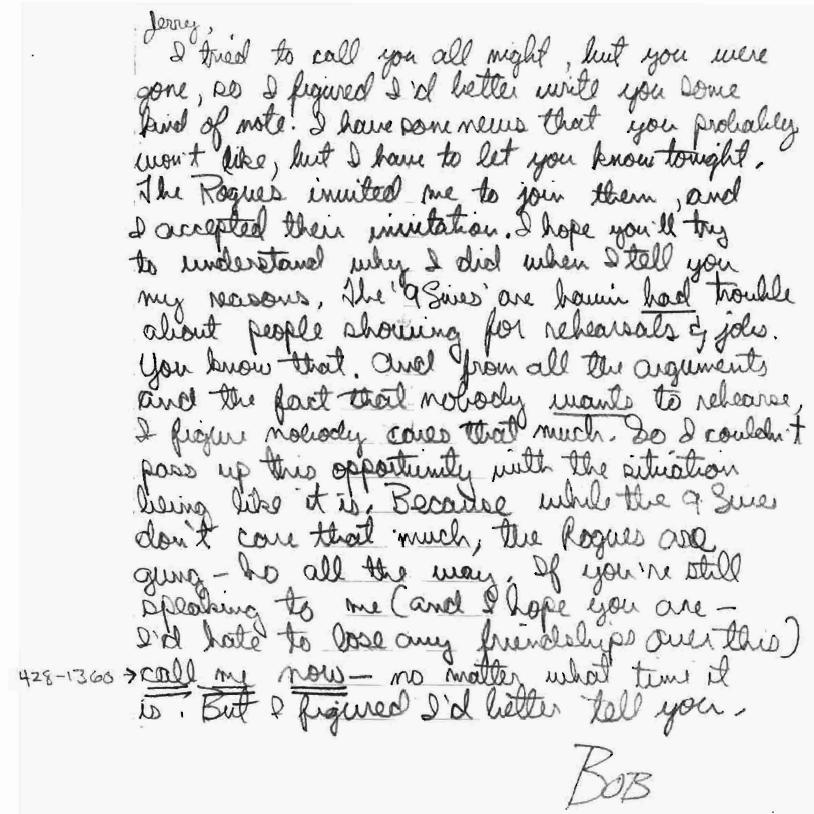 Jerry,
I tried to call you all night, but you were
gone, so I figured I'd better write you some
kind of note. I have some news that you probably
won't like, but I have to let you know tonight.
The Rogues invited me to join them, and
I accepted their invitation. I hope you'll try
to understand why I did when I tell you
my reasons. The '9 Sires' are havin had trouble
about people showing for rehearsals & jobs.
You know that. And from all the arguments
and the fact that nobody wants to rehearse,
I figure nobody cares that much. So I couldn't
pass up this opportunity with the situation
being like it is. Because while the 9 Sires
don't care that much, the Rogues are
gung-ho all the way. If you're still
speaking to me (and I hope you are –
I'd hate to lose any friendships over this)
428-1360 → call me now – no matter what time it
is. But I figured I'd better tell you.
BOB